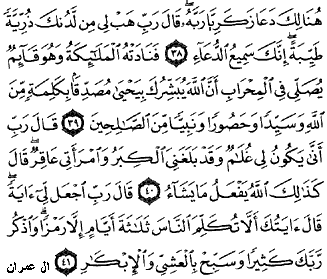 هُنَالِكَ دَعَا زَكَرِيَّا رَبَّهُۥ ۖ قَالَ رَبِّ هَبْ لِى مِن لَّدُنكَ ذُرِّيَّةً
طَيِّبَةً ۖ إِنَّكَ سَمِيعُ ٱلدُّعَآءِ ٣٨ فَنَادَتْهُ ٱلْمَلَٰٓئِكَةُ وَهُوَ قَآئِمٌ
يُصَلِّى فِى ٱلْمِحْرَابِ أَنَّ ٱللَّهَ يُبَشِّرُكَ بِيَحْيَىٰ مُصَدِّقًۢا بِكَلِمَةٍ مِّنَ
ٱللَّهِ وَسَيِّدًا وَحَصُورًا وَنَبِيًّا مِّنَ ٱلصَّٰلِحِينَ ٣٩ قَالَ رَبِّ
أَنَّىٰ يَكُونُ لِى غُلَٰمٌ وَقَدْ بَلَغَنِىَ ٱلْكِبَرُ وَٱمْرَأَتِى عَاقِرٌ ۖ قَالَ
كَذَٰلِكَ ٱللَّهُ يَفْعَلُ مَا يَشَآءُ ٤٠ قَالَ رَبِّ ٱجْعَل لِّىٓ ءَايَةً ۖ
قَالَ ءَايَتُكَ أَلَّا تُكَلِّمَ ٱلنَّاسَ ثَلَٰثَةَ أَيَّامٍ إِلَّا رَمْزًا ۗ وَٱذْكُر
رَّبَّكَ كَثِيرًا وَسَبِّحْ بِٱلْعَشِىِّ وَٱلْإِبْكَٰرِ ٤١ ال عمران